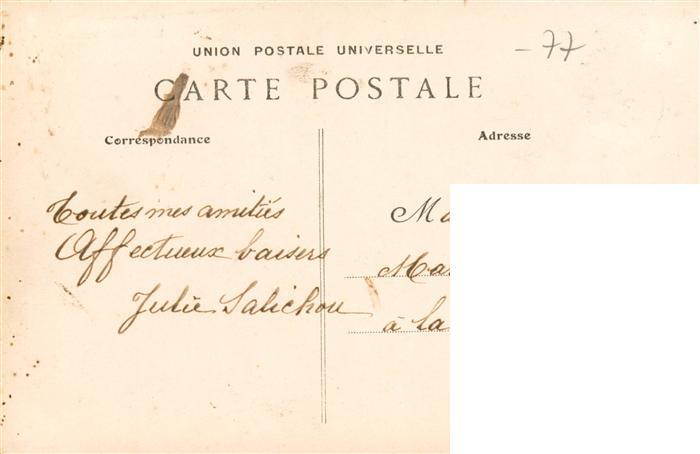 - 77
UNION POSTALE UNIVERSELLE
CARTE POSTALE
Correspondance
Adresse
Toutes mes amitiés
Affectueux baisers
Julie Salichou
à la